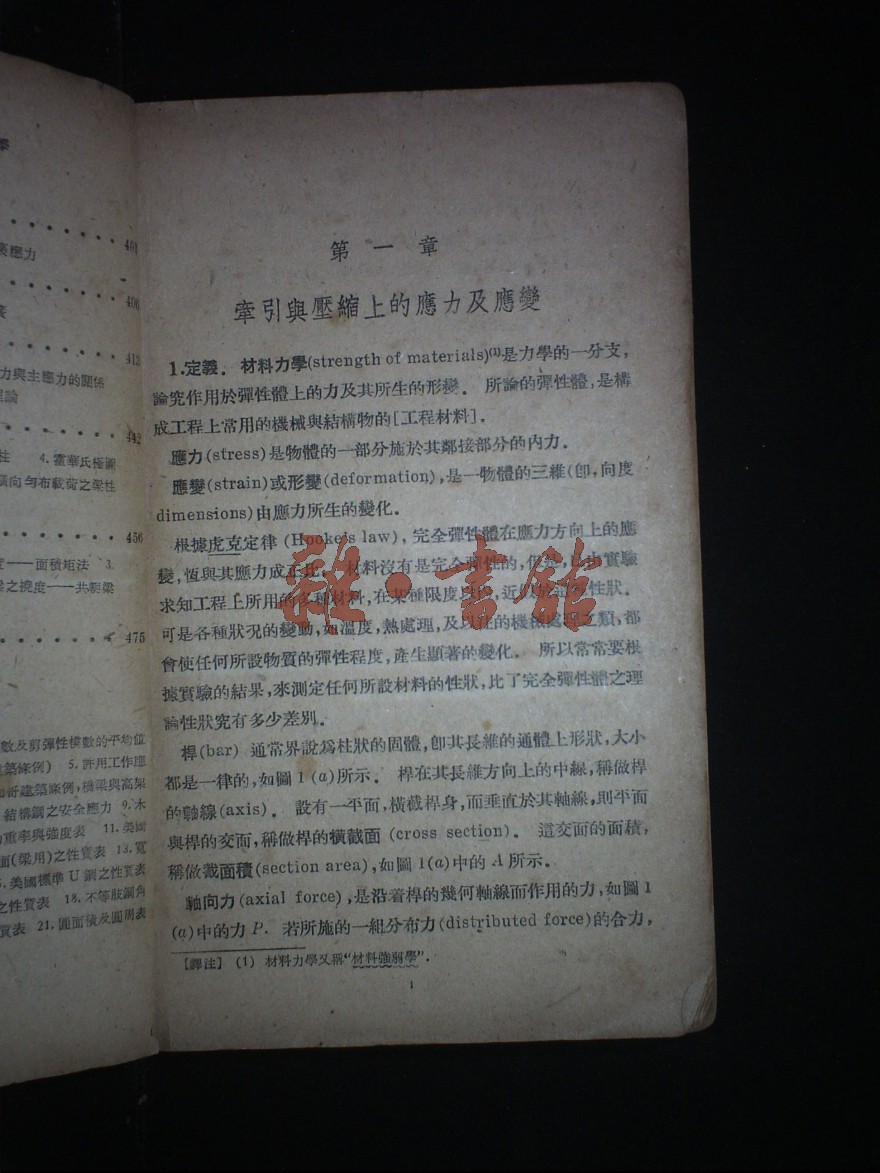 學
401
裏應力
406
413
力與主應力的關係
理論
442
柱 4. 霍華氏極圖
橫向勻布載荷之梁柱
456
度——面積矩法 3.
梁之撓度——共軛梁
475
數及剪彈性模數的平均值
築條例) 5. 許用工作應
加哥建築條例,橋梁與高架
結構鋼之安全應力 9. 木
重率與強度表 11. 美國
面(梁用)之性質表 13. 寬
美國標準 U 鋼之性質表
之性質表 18. 不等肢鋼角
質表 21. 圓面積及圓周表
第一章
牽引與壓縮上的應力及應變
1.定義. 材料力學(strength of materials)(1)是力學的一分支,
論究作用於彈性體上的力及其所生的形變. 所論的彈性體,是構
成工程上常用的機械與結構物的[工程材料].
應力(stress)是物體的一部分施於其鄰接部分的內力.
應變(strain)或形變(deformation),是一物體的三維(卽,向度
dimensions)由應力所生的變化.
根據虎克定律(Hooke's law),完全彈性體在應力方向上的應
變,恆與其應力成正比. 材料沒有是完全彈性的,但是,已由實驗
求知工程上所用的多種材料,在某種限度以內,近似於這種性狀.
可是各種狀況的變動,如溫度,熱處理,及以往的機械處理之類,都
會使任何所設物質的彈性程度,產生顯著的變化. 所以常常要根
據實驗的結果,來測定任何所設材料的性狀,比了完全彈性體之理
論性狀究有多少差別.
桿(bar) 通常界說爲柱狀的固體,卽其長維的通體上形狀,大小
都是一律的,如圖 1 (a)所示. 桿在其長維方向上的中線,稱做桿
的軸線(axis). 設有一平面,橫截桿身,而垂直於其軸線,則平面
與桿的交面,稱做桿的橫截面 (cross section). 這交面的面積,
稱做截面積(section area),如圖 1(a)中的 A 所示.
軸向力(axial force),是沿着桿的幾何軸線而作用的力,如圖 1
(a)中的力 P. 若所施的一組分布力(distributed force)的合力,
[譯注] (1) 材料力學又稱"材料強弱學".
1
雜·書館